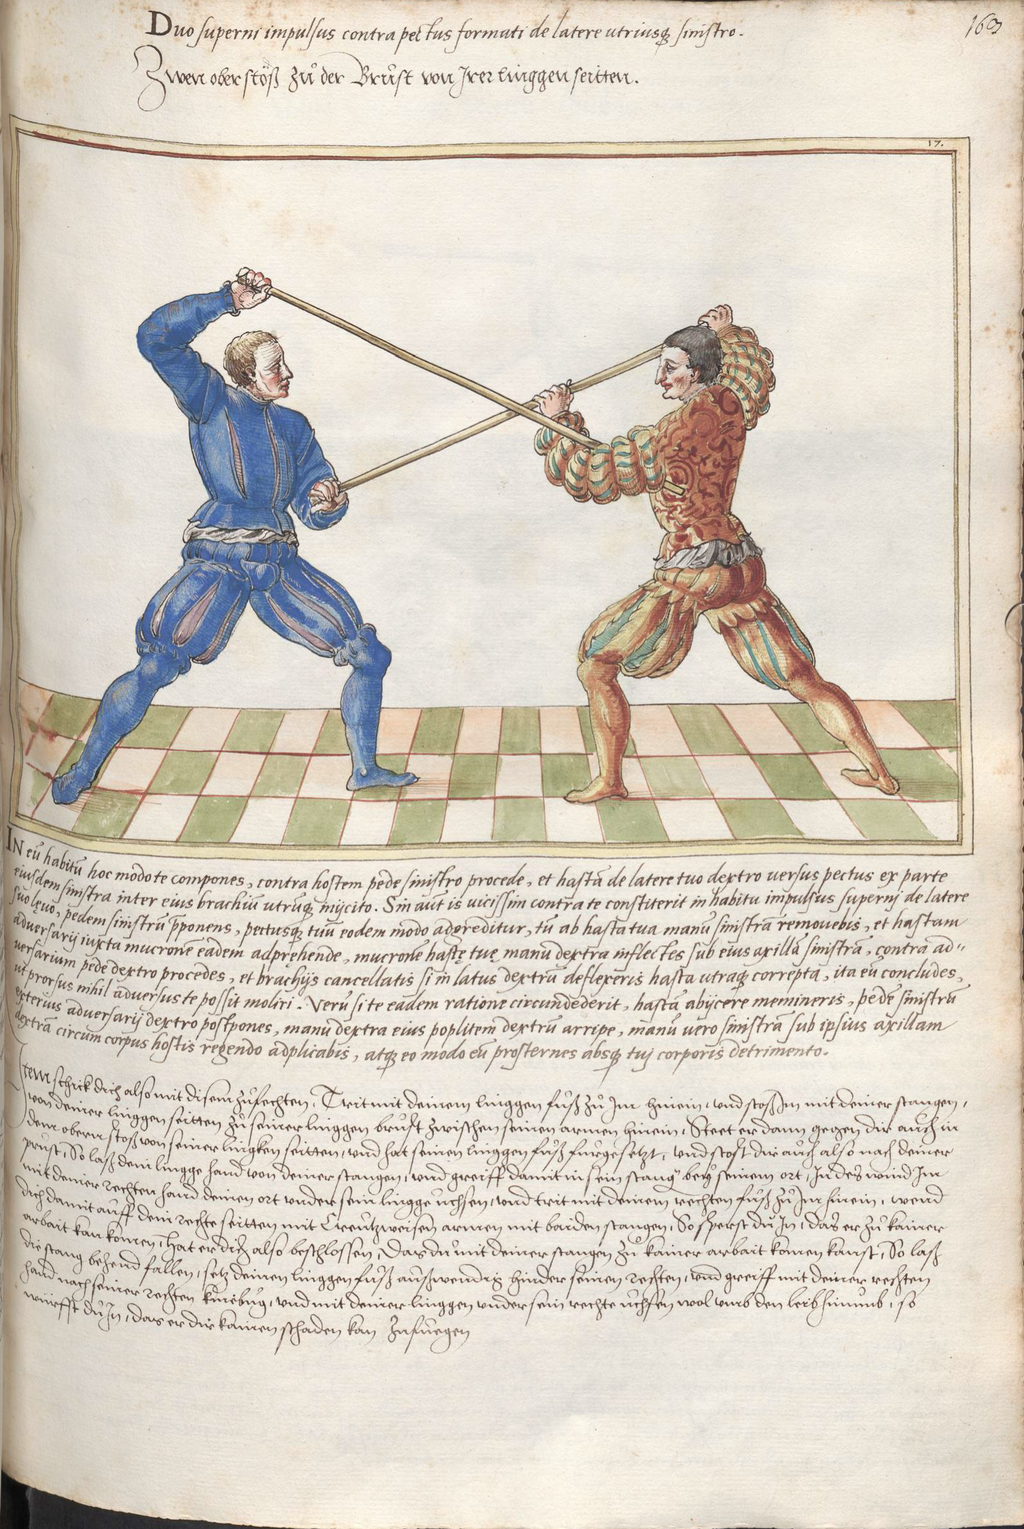 Duo superni impulsus contra pectus formati de latere utriusq; sinistro.
163
Zwen ober stöß zů der Brust von Irer linggen seitten.
17.
IN eũ habitũ hoc modo te compones, contra hostem pede sinistro procede, et hastã de latere tuo dextro versus pectus ex parte
eiusdem sinistra inter eius brachiũ utrũq; inijcito. Sin aũt is vicissim contra te constiterit in habitu impulsus supernj de latere
suo lęvo, pedem sinistrũ p̃ponens, pectusq; tuũ eodem modo adgreditur, tũ ab hasta tua manũ sinistrã removebis, et hastam
adversarij iuxta mucronẽ eadem adprehende, mucronẽ hastę tuę manu dextra inflectes sub eius axillã sinistrã, contra ad-
versarium pede dextro procedes, et brachijs cancellatis si in latus dextrũ deflexeris hasta utraq; correpta, ita eũ concludes,
ut prorsus nihil adversus te possit moliri. Verũ si te eadem ratione circundederit, hastã abijcere memineris, pedẽ sinistrũ
exterius adversarij dextro postpones, manu dextra eius poplitem dextrũ arripe, manũ vero sinistrã sub ipsius axillam
dextrã circum corpus hostis regendo adplicabis, atq; eo modo eũ prosternes absq; tuj corporis detrimento.
Item schick dich also mit disem zůfechten, Trit mit deinem linggen fůß zů Im hinein, und stoß In mit deiner stangen,
von deiner linggen seitten zů seiner linggen brust zwischen seinen armen hinein, Steet er dann gegen dir auch in
dem obern stoß von seiner lingken seitten, und hat seinen linggen fůß fürgesetzt, und stost dir auch also nach deiner
prust, So laß dein lingge hand von deiner stangen, und greiff damit in sein stang bey seinem ort, In des wind Im
mit deiner rechten hand deinen ort under sein lingge uchsen, und trit mit deinem rechten fůß zů Im hinein, wend
dich damit auff dein rechte seitten mit Creutzweisen armen mit baiden stangen, So sperst du In, das er zů kainer
arbait kan komen, hat er dich also beschlossen, das du mit deiner stangen zů kainer arbait komen kanst, So laß
die stang behend fallen, setz deinen linggen fůß außwendig hinder seinen rechten, und greiff mit deiner rechten
hand nach seiner rechten kniebůg, und mit deiner linggen under sein rechte uchsen wol umb den leib hinumb, so
würffst du In, das er dir kainen schaden kan zufuegen